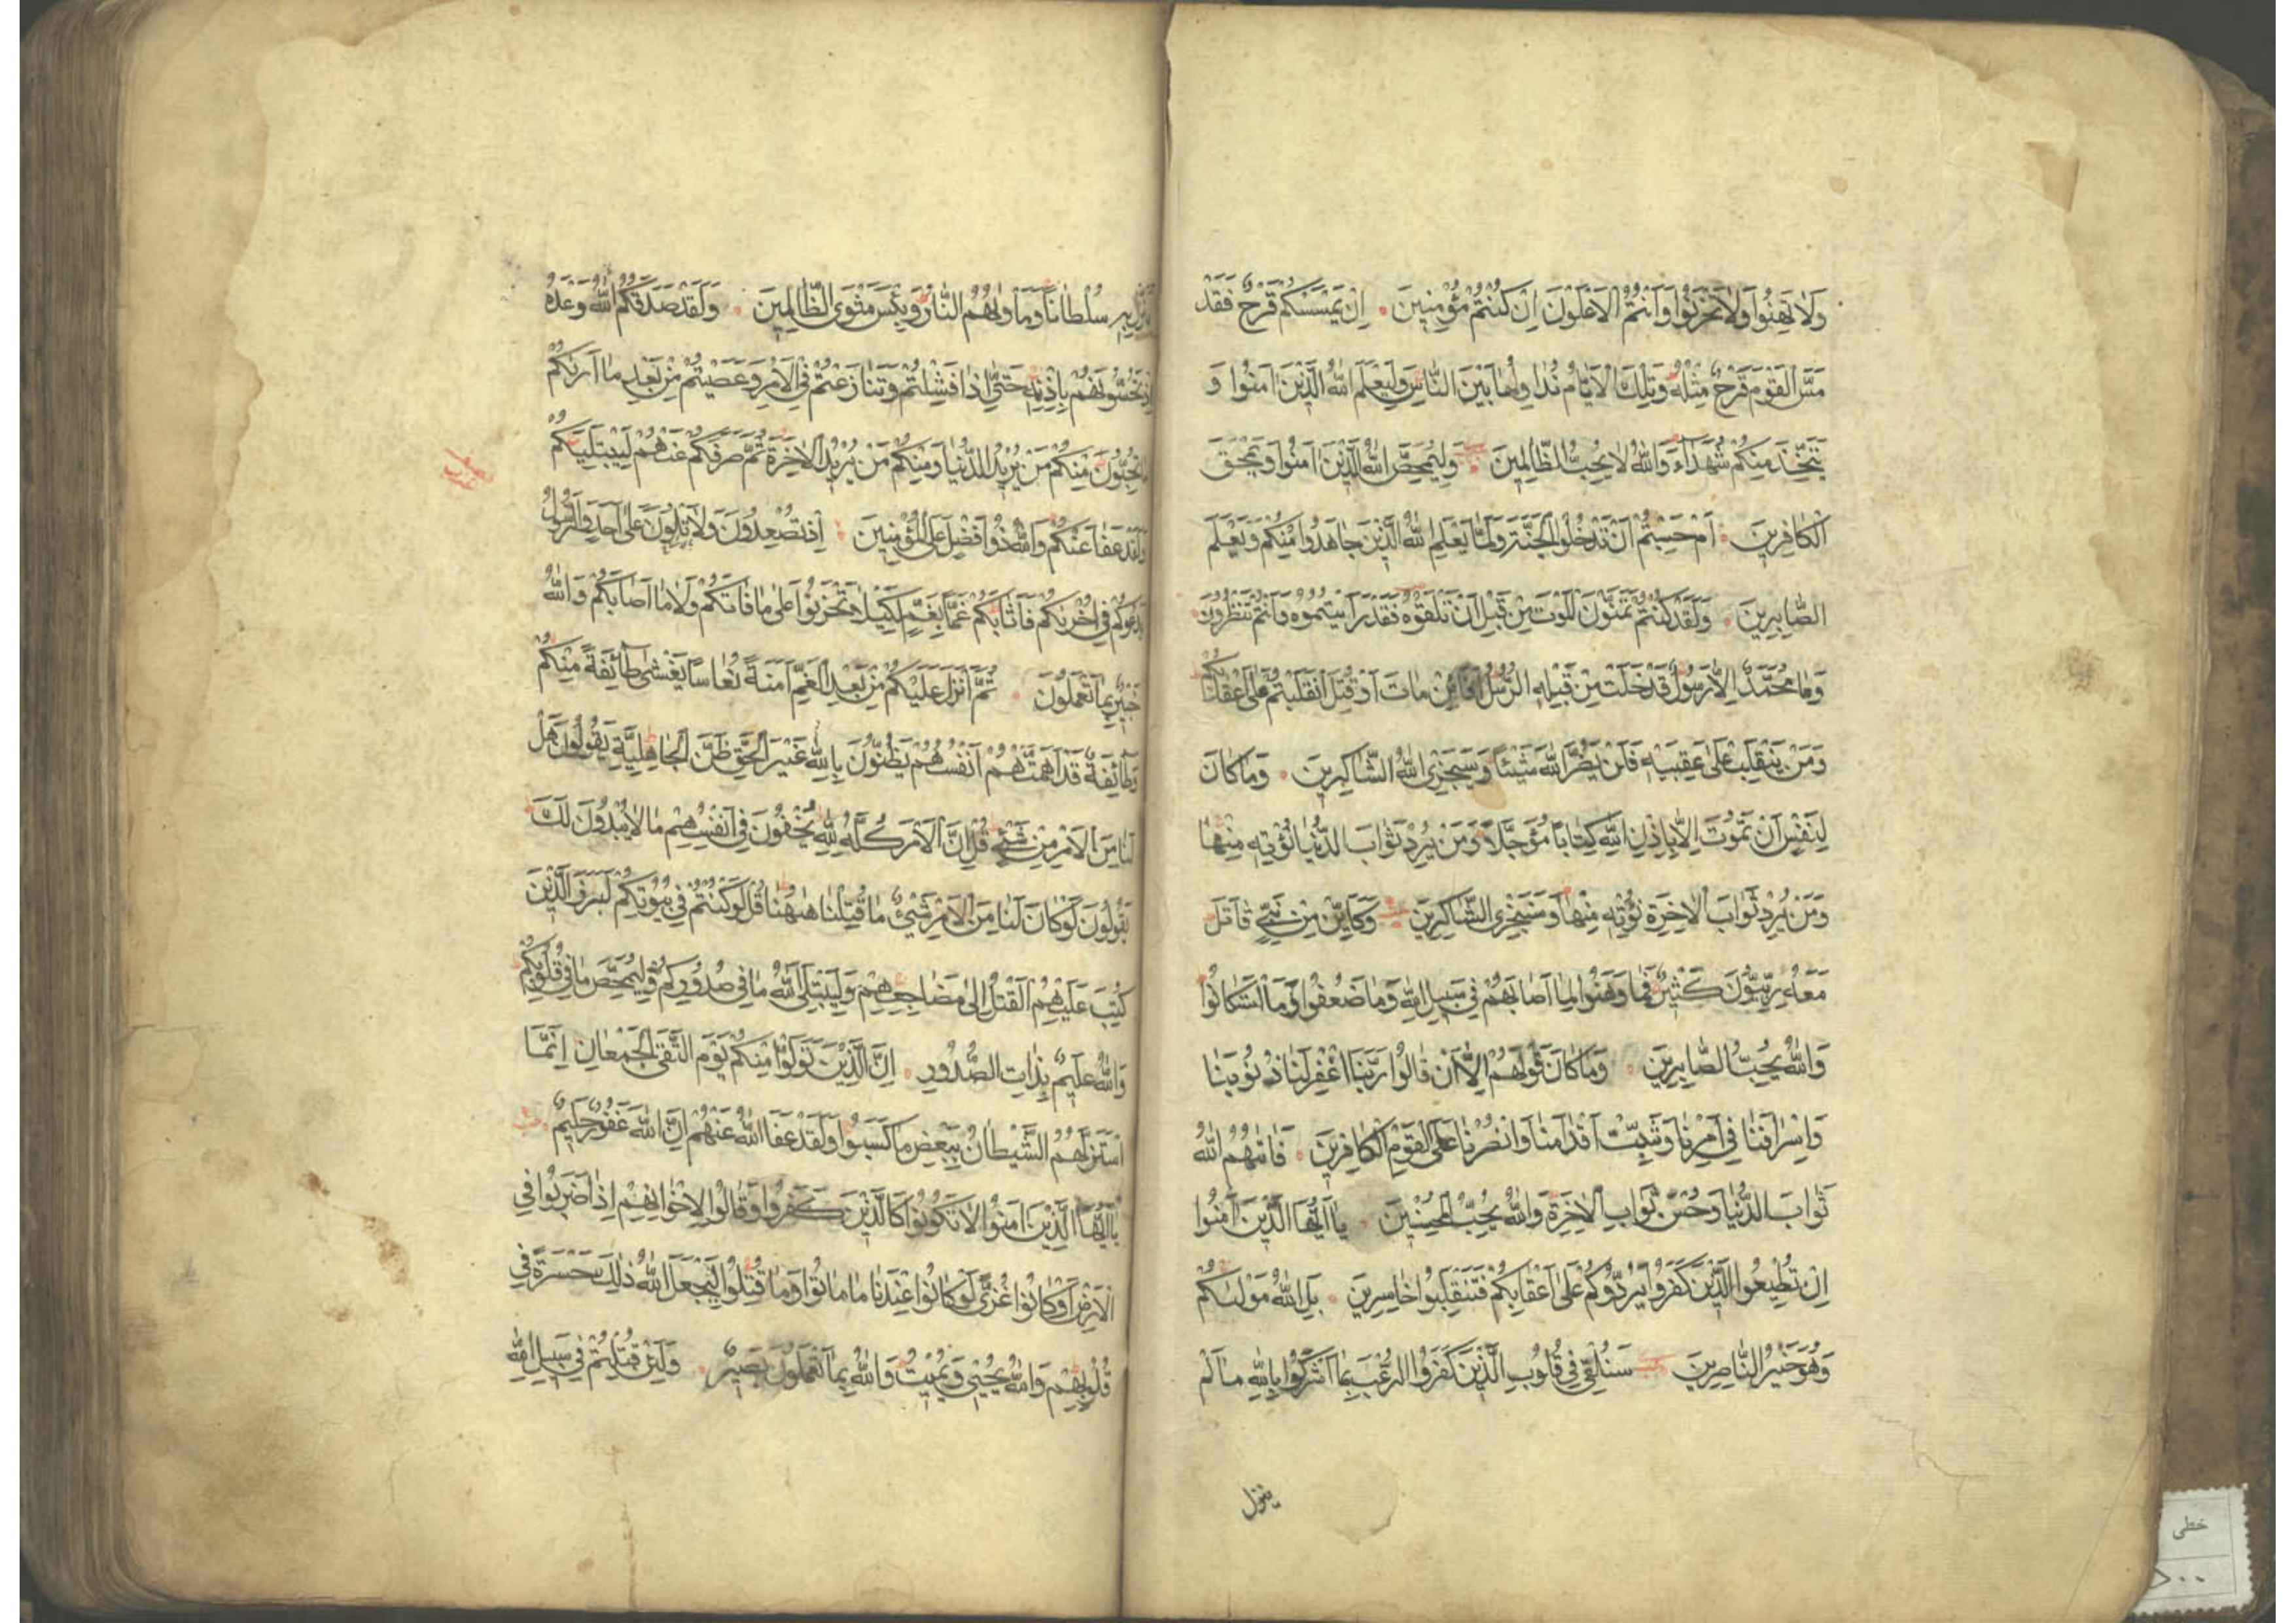 وَلَا تَهِنُوا وَلَا تَحْزَنُوا وَأَنْتُمُ الْأَعْلَوْنَ إِنْ كُنْتُمْ مُؤْمِنِينَ إِنْ يَمْسَسْكُمْ قَرْحٌ فَقَدْ
مَسَّ الْقَوْمَ قَرْحٌ مِثْلُهُ وَتِلْكَ الْأَيَّامُ نُدَاوِلُهَا بَيْنَ النَّاسِ وَلِيَعْلَمَ اللَّهُ الَّذِينَ آمَنُوا وَ
يَتَّخِذَ مِنْكُمْ شُهَدَاءَ وَاللَّهُ لَا يُحِبُّ الظَّالِمِينَ وَلِيُمَحِّصَ اللَّهُ الَّذِينَ آمَنُوا وَيَمْحَقَ
الْكَافِرِينَ أَمْ حَسِبْتُمْ أَنْ تَدْخُلُوا الْجَنَّةَ وَلَمَّا يَعْلَمِ اللَّهُ الَّذِينَ جَاهَدُوا مِنْكُمْ وَيَعْلَمَ
الصَّابِرِينَ وَلَقَدْ كُنْتُمْ تَمَنَّوْنَ الْمَوْتَ مِنْ قَبْلِ أَنْ تَلْقَوْهُ فَقَدْ رَأَيْتُمُوهُ وَأَنْتُمْ تَنْظُرُونَ
وَمَا مُحَمَّدٌ إِلَّا رَسُولٌ قَدْ خَلَتْ مِنْ قَبْلِهِ الرُّسُلُ أَفَإِنْ مَاتَ أَوْ قُتِلَ انْقَلَبْتُمْ عَلَى أَعْقَابِكُمْ
وَمَنْ يَنْقَلِبْ عَلَى عَقِبَيْهِ فَلَنْ يَضُرَّ اللَّهَ شَيْئًا وَسَيَجْزِي اللَّهُ الشَّاكِرِينَ وَمَا كَانَ
لِنَفْسٍ أَنْ تَمُوتَ إِلَّا بِإِذْنِ اللَّهِ كِتَابًا مُؤَجَّلًا وَمَنْ يُرِدْ ثَوَابَ الدُّنْيَا نُؤْتِهِ مِنْهَا
وَمَنْ يُرِدْ ثَوَابَ الْآخِرَةِ نُؤْتِهِ مِنْهَا وَسَنَجْزِي الشَّاكِرِينَ وَكَأَيِّنْ مِنْ نَبِيٍّ قَاتَلَ
مَعَهُ رِبِّيُّونَ كَثِيرٌ فَمَا وَهَنُوا لِمَا أَصَابَهُمْ فِي سَبِيلِ اللَّهِ وَمَا ضَعُفُوا وَمَا اسْتَكَانُوا
وَاللَّهُ يُحِبُّ الصَّابِرِينَ وَمَا كَانَ قَوْلَهُمْ إِلَّا أَنْ قَالُوا رَبَّنَا اغْفِرْ لَنَا ذُنُوبَنَا
وَإِسْرَافَنَا فِي أَمْرِنَا وَثَبِّتْ أَقْدَامَنَا وَانْصُرْنَا عَلَى الْقَوْمِ الْكَافِرِينَ فَآتَاهُمُ اللَّهُ
ثَوَابَ الدُّنْيَا وَحُسْنَ ثَوَابِ الْآخِرَةِ وَاللَّهُ يُحِبُّ الْمُحْسِنِينَ يَا أَيُّهَا الَّذِينَ آمَنُوا
إِنْ تُطِيعُوا الَّذِينَ كَفَرُوا يَرُدُّوكُمْ عَلَى أَعْقَابِكُمْ فَتَنْقَلِبُوا خَاسِرِينَ بَلِ اللَّهُ مَوْلَاكُمْ
وَهُوَ خَيْرُ النَّاصِرِينَ سَنُلْقِي فِي قُلُوبِ الَّذِينَ كَفَرُوا الرُّعْبَ بِمَا أَشْرَكُوا بِاللَّهِ مَا لَمْ
ينزل
يُنَزِّلْ بِهِ سُلْطَانًا وَمَأْوَاهُمُ النَّارُ وَبِئْسَ مَثْوَى الظَّالِمِينَ وَلَقَدْ صَدَقَكُمُ اللَّهُ وَعْدَهُ
إِذْ تَحُسُّونَهُمْ بِإِذْنِهِ حَتَّى إِذَا فَشِلْتُمْ وَتَنَازَعْتُمْ فِي الْأَمْرِ وَعَصَيْتُمْ مِنْ بَعْدِ مَا أَرَاكُمْ
مَا تُحِبُّونَ مِنْكُمْ مَنْ يُرِيدُ الدُّنْيَا وَمِنْكُمْ مَنْ يُرِيدُ الْآخِرَةَ ثُمَّ صَرَفَكُمْ عَنْهُمْ لِيَبْتَلِيَكُمْ
وَلَقَدْ عَفَا عَنْكُمْ وَاللَّهُ ذُو فَضْلٍ عَلَى الْمُؤْمِنِينَ إِذْ تُصْعِدُونَ وَلَا تَلْوُونَ عَلَى أَحَدٍ وَالرَّسُولُ
يَدْعُوكُمْ فِي أُخْرَاكُمْ فَأَثَابَكُمْ غَمًّا بِغَمٍّ لِكَيْلَا تَحْزَنُوا عَلَى مَا فَاتَكُمْ وَلَا مَا أَصَابَكُمْ وَاللَّهُ
خَبِيرٌ بِمَا تَعْمَلُونَ ثُمَّ أَنْزَلَ عَلَيْكُمْ مِنْ بَعْدِ الْغَمِّ أَمَنَةً نُعَاسًا يَغْشَى طَائِفَةً مِنْكُمْ
وَطَائِفَةٌ قَدْ أَهَمَّتْهُمْ أَنْفُسُهُمْ يَظُنُّونَ بِاللَّهِ غَيْرَ الْحَقِّ ظَنَّ الْجَاهِلِيَّةِ يَقُولُونَ هَلْ
لَنَا مِنَ الْأَمْرِ مِنْ شَيْءٍ قُلْ إِنَّ الْأَمْرَ كُلَّهُ لِلَّهِ يُخْفُونَ فِي أَنْفُسِهِمْ مَا لَا يُبْدُونَ لَكَ
يَقُولُونَ لَوْ كَانَ لَنَا مِنَ الْأَمْرِ شَيْءٌ مَا قُتِلْنَا هَاهُنَا قُلْ لَوْ كُنْتُمْ فِي بُيُوتِكُمْ لَبَرَزَ الَّذِينَ
كُتِبَ عَلَيْهِمُ الْقَتْلُ إِلَى مَضَاجِعِهِمْ وَلِيَبْتَلِيَ اللَّهُ مَا فِي صُدُورِكُمْ وَلِيُمَحِّصَ مَا فِي قُلُوبِكُمْ
وَاللَّهُ عَلِيمٌ بِذَاتِ الصُّدُورِ إِنَّ الَّذِينَ تَوَلَّوْا مِنْكُمْ يَوْمَ الْتَقَى الْجَمْعَانِ إِنَّمَا
اسْتَزَلَّهُمُ الشَّيْطَانُ بِبَعْضِ مَا كَسَبُوا وَلَقَدْ عَفَا اللَّهُ عَنْهُمْ إِنَّ اللَّهَ غَفُورٌ حَلِيمٌ
يَا أَيُّهَا الَّذِينَ آمَنُوا لَا تَكُونُوا كَالَّذِينَ كَفَرُوا وَقَالُوا لِإِخْوَانِهِمْ إِذَا ضَرَبُوا فِي
الْأَرْضِ أَوْ كَانُوا غُزًّى لَوْ كَانُوا عِنْدَنَا مَا مَاتُوا وَمَا قُتِلُوا لِيَجْعَلَ اللَّهُ ذَلِكَ حَسْرَةً فِي
قُلُوبِهِمْ وَاللَّهُ يُحْيِي وَيُمِيتُ وَاللَّهُ بِمَا تَعْمَلُونَ بَصِيرٌ وَلَئِنْ قُتِلْتُمْ فِي سَبِيلِ اللَّهِ
خطی